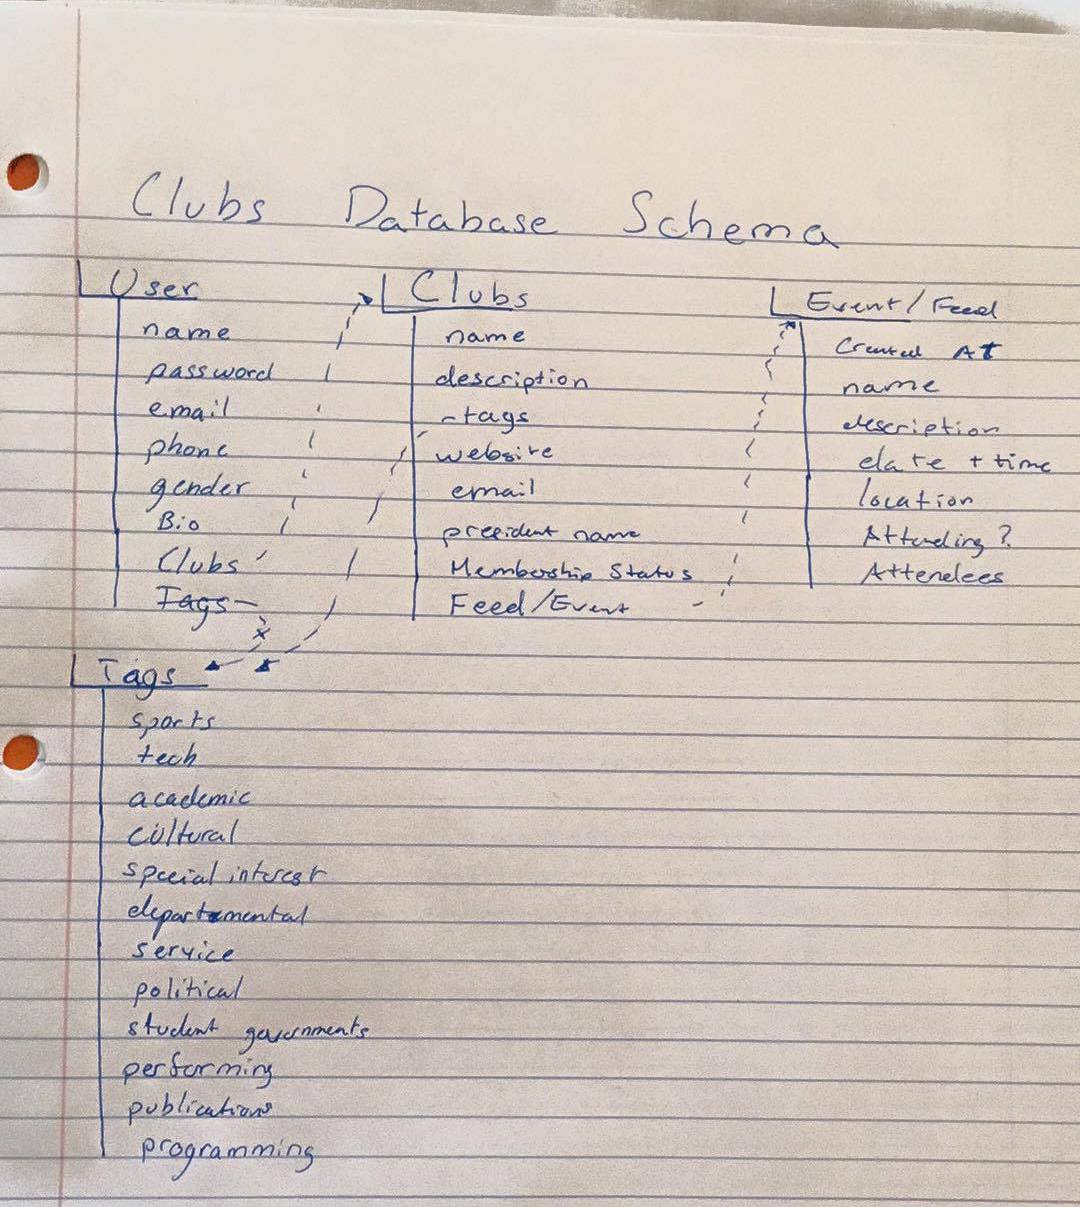 Clubs Database Schema
User
name
password
email
phone
gender
Bio
Clubs
Tags
Clubs
name
description
tags
website
email
president name
Membership Status
Feed/Event
Event/Feed
Created At
name
description
date + time
location
Attending?
Attendees
Tags
sports
tech
academic
cultural
special interest
departmental
service
political
student governments
performing
publications
programming